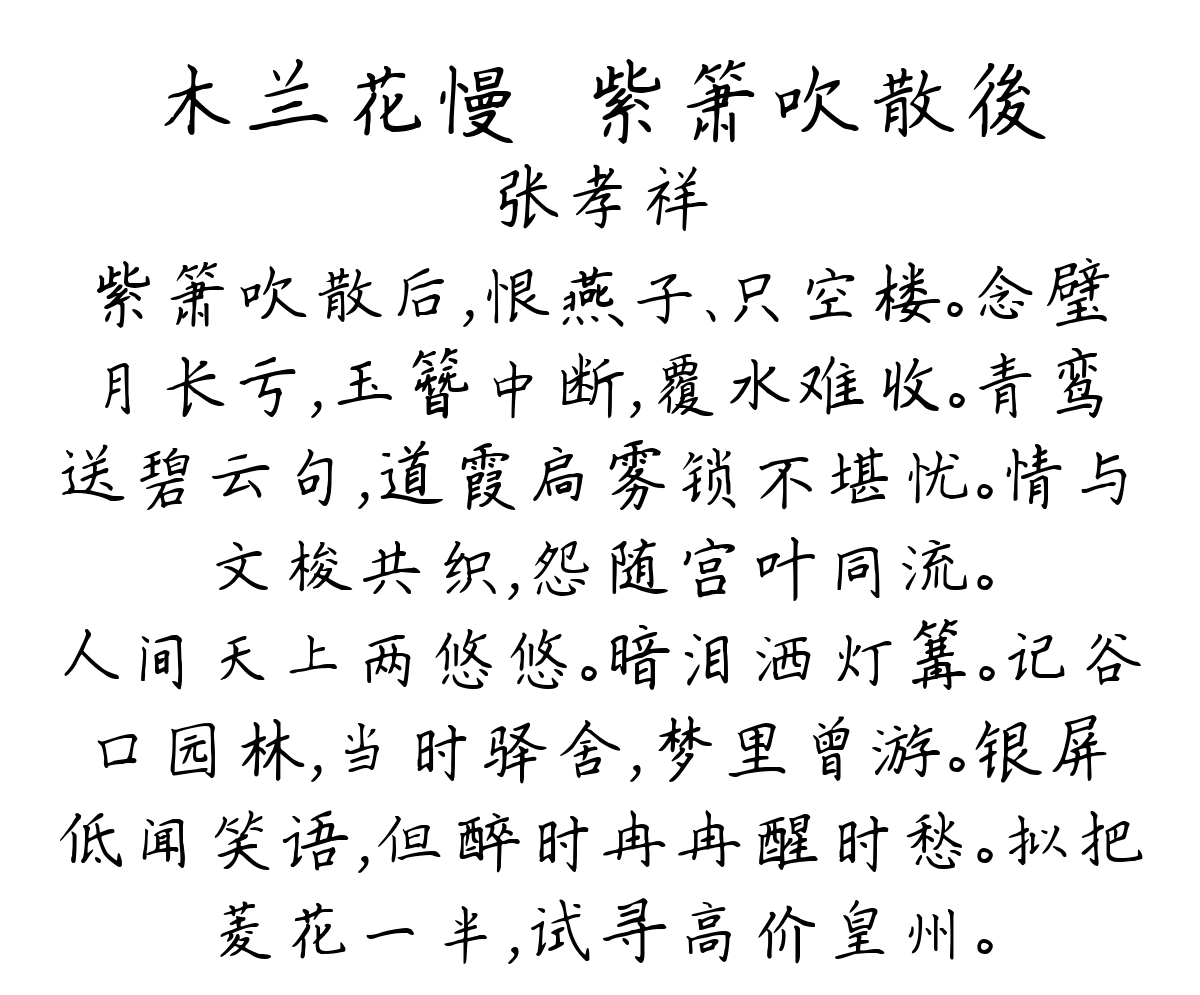 木兰花慢 紫箫吹散後
张孝祥
紫箫吹散后,恨燕子、只空楼。念璧
月长亏,玉簪中断,覆水难收。青鸾
送碧云句,道霞扃雾锁不堪忧。情与
文梭共织,怨随宫叶同流。
人间天上两悠悠。暗泪洒灯篝。记谷
口园林,当时驿舍,梦里曾游。银屏
低闻笑语,但醉时冉冉醒时愁。拟把
菱花一半,试寻高价皇州。